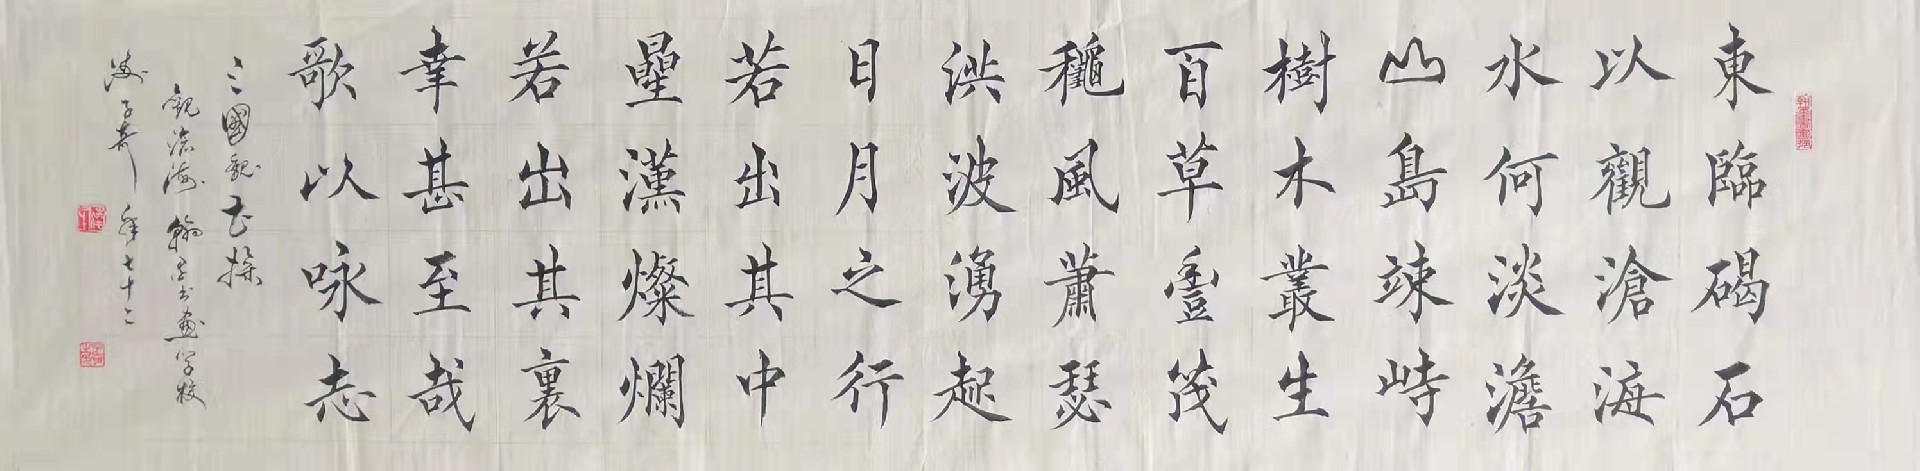 東臨碣石
以觀滄海
水何淡澹
山島竦峙
樹木叢生
百草豐茂
龝風蕭瑟
洪波湧起
日月之行
若出其中
星漢燦爛
若出其裏
幸甚至哉
歌以咏志
三國魏曹操
觀滄海翰墨书画学校
年七十二